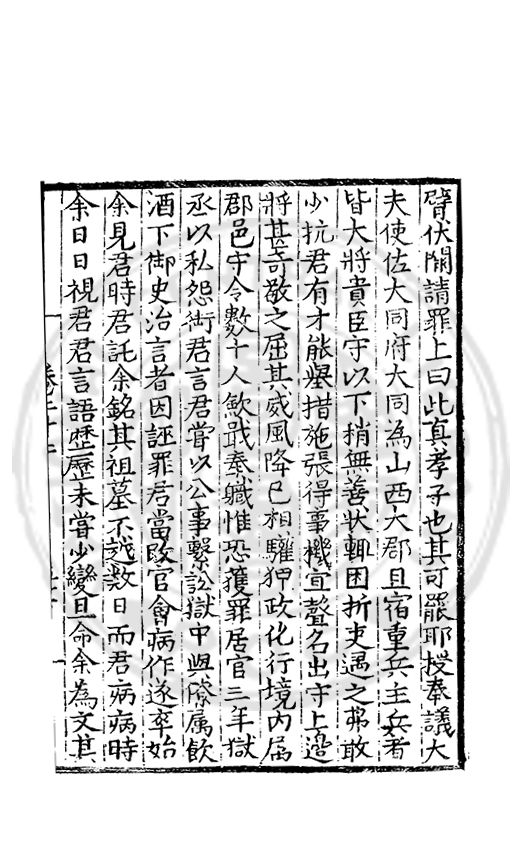 臂伏闕請罪上曰此真孝子也其可罷耶授奉議大
夫使佐大同府大同為山西大郡且宿重兵主兵者
皆大將貴臣守以下稍無善狀輒困折吏遇之弗敢
少抗君有才能舉措施張得事機宜聲名出守上邊
將甚奇敬之屈其威風降已相驩狎政化行境內屬
郡邑守令數十人歛戢奉職惟恐獲罪居官三年獄
丞以私怨銜君言君嘗以公事繫訟獄中與隊属飲
酒下御史治言者因誣罪君當改官會病作遂卒始
余見君時君託余銘其祖墓不越数日而君病病時
余日日視君君言語歷歷未嘗少變且命余為文其